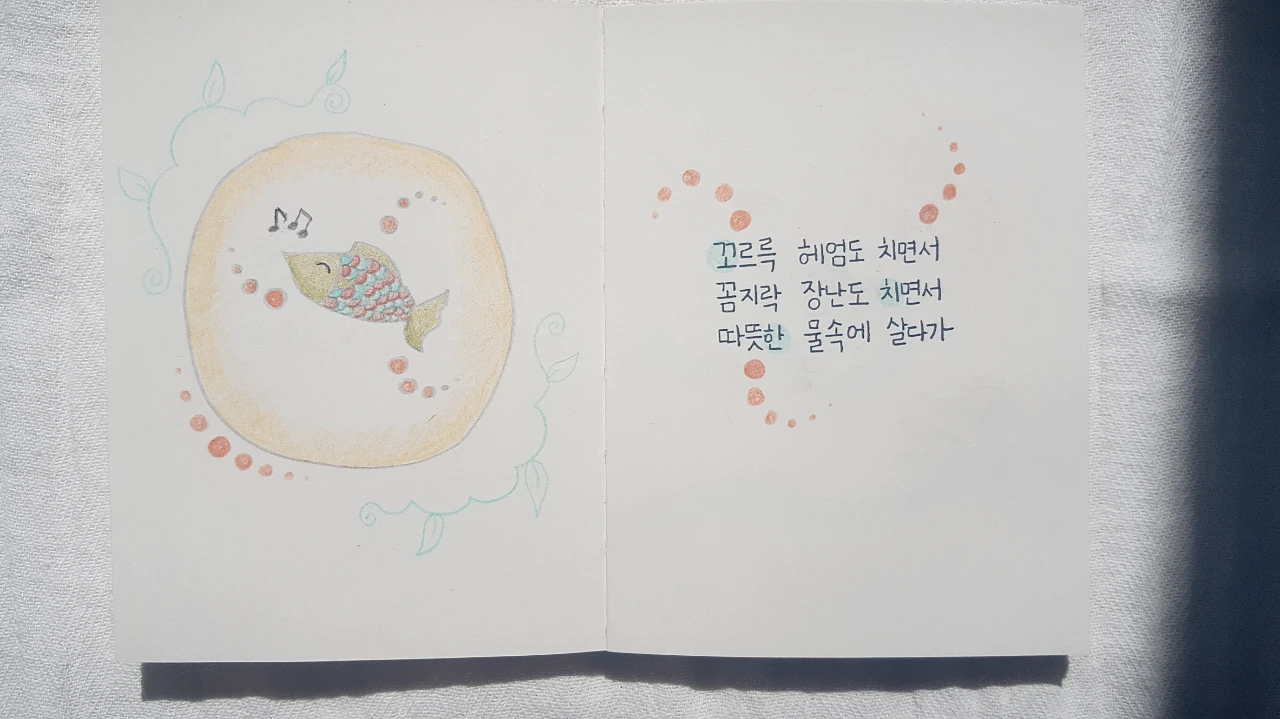 꼬르륵 헤엄도 치면서
꼼지락 장난도 치면서
따뜻한 물속에 살다가